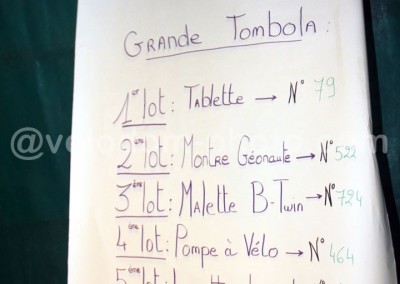 Grande Tombola :
1er lot : Tablette → N° 79
2ème lot : Montre Géonaute → N° 522
3ème lot : Malette B-Twin → N° 724
4ème lot : Pompe à Vélo → N° 464
5ème lot :